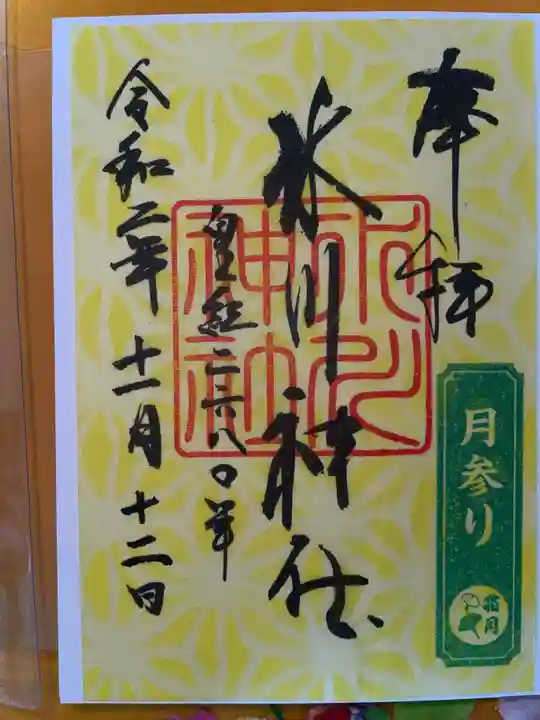 奉拝
月参り
氷川神社
氷川神社
皇紀二六八〇年
令和二年十一月十二日